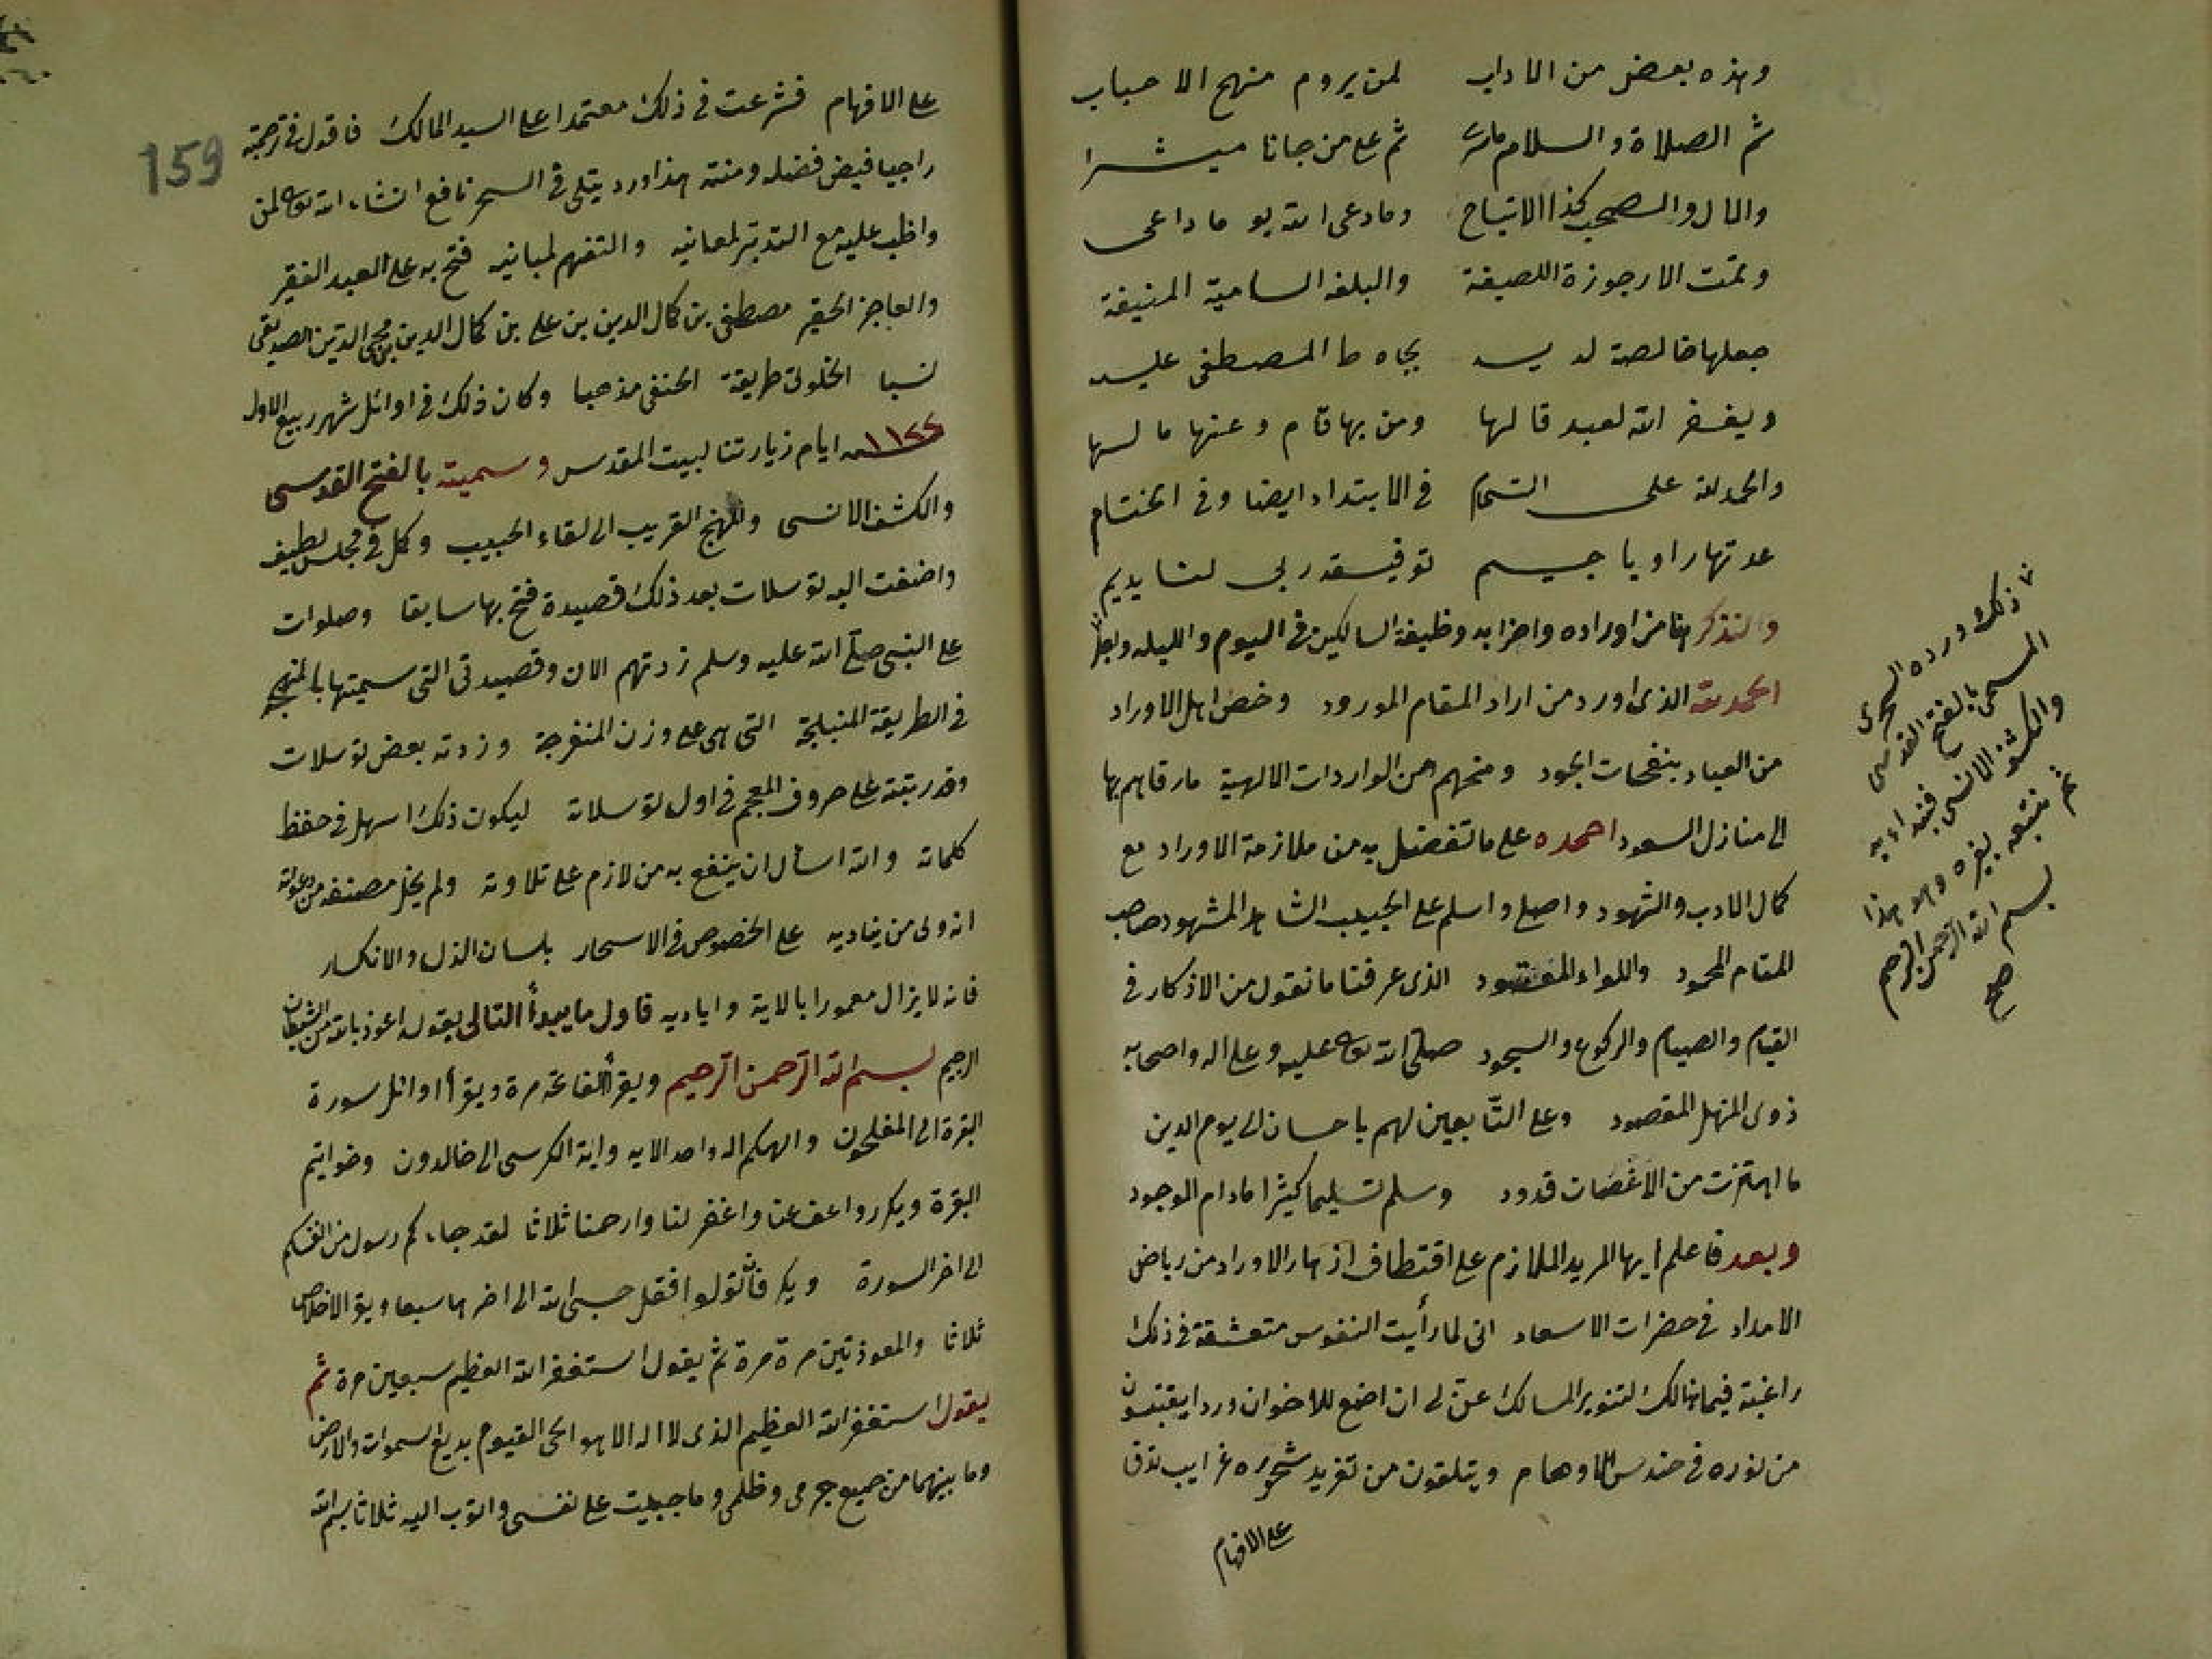 وهذه بعض من الاداب لمن يروم منهج الاحباب
ثم الصلاة والسلام ثم على من جانا مبشرا
والال والصحب كذا الاتباع وما دعى الله بو ما داعى
وتمت الارجوزة اللصيفة والبلغه السامية المنيفة
جعلها خالصة لديه بجاه طه المصطفى عليه
ويغفر الله لعبد قالها ومن بها قام وعنها ما لها
والحمد لله على التمام في الابتداء ايضا وفي الختام
عدتها را ويا جيم توفيقه ربي لنا يديم
ولنذكر هنا من اوراده واحزابه وظيفة السالكين في اليوم والليله
الحمد لله الذي اورد من اراد المقام المورود وخص اهل الاوراد
من العباد بنفحات الجود ومنحهم من الواردات الالهية ما رقاهم بها
الى منازل السعود احمده على ما تفضل به من ملازمة الاوراد مع
كمال الادب والشهود واصلي واسلم على الحبيب الشاهد المشهود صاحب
المقام المحمود واللواء المعقود الذي عرفنا ما نقول من الاذكار في
القيام والصيام والركوع والسجود صلى الله تعالى عليه وعلى اله واصحابه
ذوي المنهل المقصود وعلى التابعين لهم باحسان الى يوم الدين
ما اهتزت من الاغصان قدود وسلم تسليما كثيرا ما دام الوجود
وبعد فاعلم ايها المريد الملازم على اقتطاف ازهار الاوراد من رياض
الامداد في حضرات الاسعاد اني لما رأيت النفوس متعشقة في ذلك
راغبة فيما هنالك لتنوير المسالك عن لي ان اضع للاخوان وردا يقتبسون
من نوره في حندس الاوهام ويتلقون من تغريد شحروره غرايب تدق
على الافهام
ذلك ورده السحري
المسمى بالفتح القدسي
والكشف الانسي فنبداء به
ثم نتبعه بغيره وهو هذا
بسم الله الرحمن الرحيم
صح
159
على الافهام فشرعت في ذلك معتمدا على السيد المالك فاقول في ترجمته
راجيا فيض فضله ومنته هذا ورد يتلى في السحر نافع انشاء الله تعالى لمن
واظب عليه مع التدبر لمعانيه والتفهم لمبانيه فتح به على العبد الفقير
والعاجز الحقير مصطفى بن كمال الدين بن علي بن كمال الدين بن محيي الدين الصديقي
نسبا الخلوتي طريقة الحنفي مذهبا وكان ذلك في اوائل شهر ربيع الاول
١١٢٢ سنه ايام زيارتنا لبيت المقدس وسميته بالفتح القدسي
والكشف الانسي والمنهج القريب الى لقاء الحبيب وكمل في مجلس لطيف
واضفت اليه توسلات بعد ذلك قصيدة فتح بها سابقا وصلوات
على النبي صلى الله عليه وسلم زدتهم الان وقصيدتي التي سميتها بالمنهجة
في الطريقة المنبلجة التي هي على وزن المنفرجة وزدته بعض توسلات
وقد رتبته على حروف المعجم في اول توسلاته ليكون ذلك اسهل في حفظ
كلماته والله اسأل ان ينفع به من لازم على تلاوته ولم يخل مصنفه من دعوته
انه ولي من يناديه على الخصوص في الاسحار بلسان الذل والانكسار
فانه لا يزال معمورا بالاية واياديه فاول ما يبدأ التالي يقول اعوذ بالله من الشيطان
الرجيم بسم الله الرحمن الرحيم ويقرأ الفاتحه مرة ويقرأ اوائل سورة
البقرة الى المفلحون والهكم اله واحد الايه واية الكرسي الى خالدون وخواتيم
البقرة ويكرر واعف عنا واغفر لنا وارحمنا ثلاثا لقد جاءكم رسول من انفسكم
الى اخر السورة ويكرر فان تولوا فقل حسبي الله الى اخرها سبعا ويقرأ الاخلاص
ثلاثا والمعوذتين مرة مرة ثم يقول استغفر الله العظيم سبعين مرة ثم
يقول استغفر الله العظيم الذي لا اله الا هو الحي القيوم بديع السموات والارض
وما بينهما من جميع جرمي وظلمي وما جنيت على نفسي واتوب اليه ثلاثا بسم الله